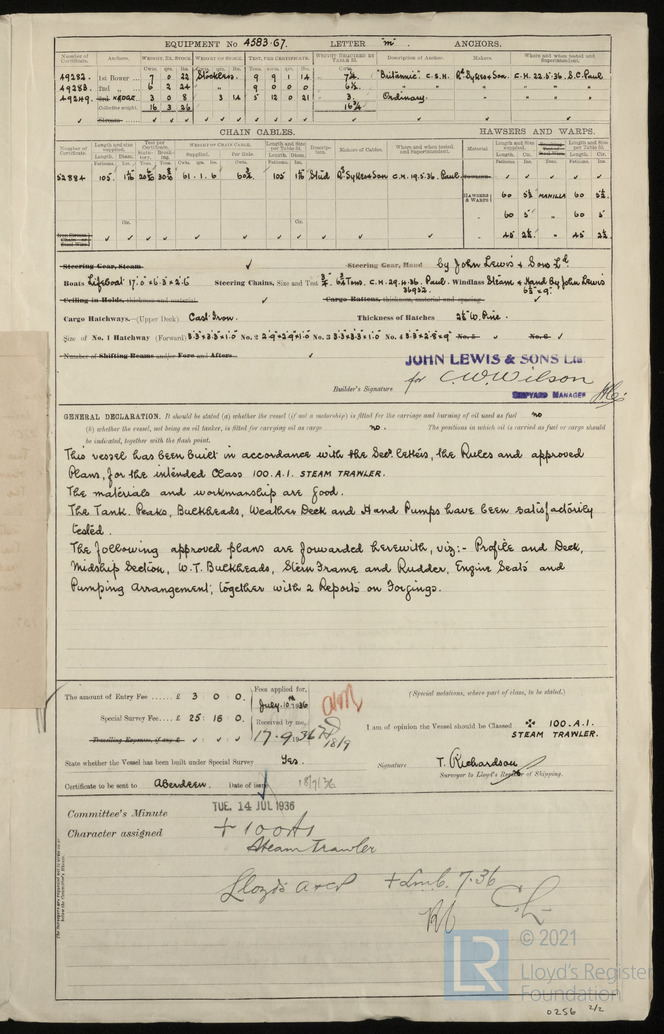 EQUIPMENT No 4583.67. LETTER "m" ANCHORS.
Number of Certificate. Anchors. WEIGHT, EX. STOCK. WEIGHT OF STOCK. TEST, PER CERTIFICATE. WEIGHT REQUIRED BY TABLE 31. Description of Anchor. Makers. Where and when tested and Superintendent.
Cwts. qrs. lbs. Cwts. qrs. lbs. Tons. Cwts. qrs. lbs. Cwts.
49282. 1st Bower ... 7 0 22 Stockless. 9 9 1 14 7¼. "Britannic" C.S.H. Rd Sykes & Son. C.H. 22.5.36. S.C. Paul
49283. 2nd " ... 6 2 24 " 9 0 0 0 6½. " " " " "
49249. KEDGE. 3 0 8 3 14 5 12 0 21 3. Ordinary. " " " "
Collective weight. 16 3 26 16¾
CHAIN CABLES. HAWSERS AND WARPS.
Number of Certificate. Length and size supplied. Test per Certificate. WEIGHT OF CHAIN CABLE. Length and Size per Table 31. Description. Makers of Cables. Where and when tested, and Superintendent. Material Length and Size supplied. Length and Size per Table 31.
Fathoms. Ins. Supplied. Per Rule. Length. Diam. Fathoms. Cir.
52884 105. 61.1.6 60¾. 105 Stud Rd Sykes & Son C.H. 19.5.36. Paul.
HAWSERS & WARPS 60 5½ MANILLA 60 5½
" 60 5" " 60 5
" 45 2½. " 45 2½
Steering Gear, Steam ✓ Steering Gear, Hand by John Lewis & Sons Ld.
Boats Lifeboat 17'.0"x6'.3"x2'.6 Steering Chains, Size and Test C.H. 29.4.36. Paul. 36952. Windlass Steam & Hand by John Lewis 6½"x9".
Ceiling in Holds, thickness and material ✓ Cargo Battens, thickness, material and spacing ✓
Cargo Hatchways.—(Upper Deck) Cast Iron. Thickness of Hatches 2½" W. Pine.
Size of No. 1 Hatchway (Forward) 3'.3"x3'.3"x1'.0 No. 2 2'.9"x2'.9"x1'.0 No. 3 3'.3"x3'.3"x1'.0 No. 4 3'.3"x2'.8"x9" No. 5 ✓ No. 6 ✓
Number of Shifting Beams and/or Fore and Afters ✓
JOHN LEWIS & SONS LTD.
Builder's Signature for C. W. Wilson
SHIPYARD MANAGER
GENERAL DECLARATION. It should be stated (a) whether the vessel (if not a motorship) is fitted for the carriage and burning of oil used as fuel no
(b) whether the vessel, not being an oil tanker, is fitted for carrying oil as cargo no. The positions in which oil is carried as fuel or cargo should
be indicated, together with the flash point.
This vessel has been built in accordance with the Secy. letters, the Rules and approved
Plans, for the intended Class 100.A.1. STEAM TRAWLER.
The materials and workmanship are good.
The Tank. Peaks, Bulkheads, Weather Deck and Hand Pumps have been satisfactorily
tested.
The following approved plans are forwarded herewith, viz:- Profile and Deck,
Midship Section, W.T. Bulkheads, Stern Frame and Rudder, Engine Seats and
Pumping Arrangement; together with 2 Reports on Forgings.
The amount of Entry Fee ...... £ 3 0 0. Fees applied for,
July. 10th 1936 (Special notations, where part of class, to be stated.)
Special Survey Fee.... £ 25: 16 0. Received by me,
Travelling Expenses, if any £ 17.9.1936 18/9 I am of opinion the Vessel should be Classed ✠ 100.A.1.
STEAM TRAWLER.
State whether the Vessel has been built under Special Survey Yes. Signature T. Richardson
Surveyor to Lloyd's Register of Shipping.
Certificate to be sent to Aberdeen. Date of issue 18/7/36
Committee's Minute TUE. 14 JUL 1936
Character assigned + 100A1
Steam Trawler
Lloyds A & CP + Lmb. 7.36
© 2021
LR Lloyd's Register
Foundation
0256 2/2